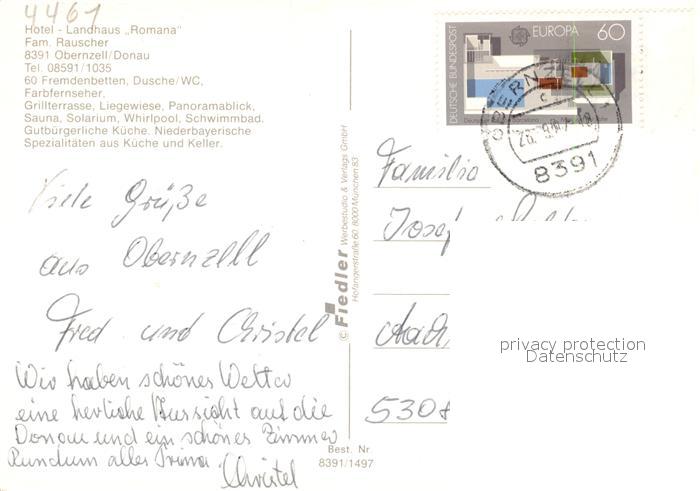 4461
Hotel - Landhaus „Romana"
Fam. Rauscher
8391 Obernzell/Donau
Tel. 08591/1035
60 Fremdenbetten, Dusche/WC,
Farbfernseher,
Grillterrasse, Liegewiese, Panoramablick,
Sauna, Solarium, Whirlpool, Schwimmbad.
Gutbürgerliche Küche. Niederbayerische
Spezialitäten aus Küche und Keller.
Viele Grüße
aus Obernzell
Fred und Christel
Wir haben schönes Wetter
eine herliche Aussicht auf die
Donau und ein schönes Zimmer
Rundum alles Prima
Christel
Best. Nr.
8391/1497
© Fiedler Werbestudio & Verlags GmbH
Hofangerstraße 60 8000 München 83
DEUTSCHE BUNDESPOST
EUROPA 60
OBERNZELL
8391
Familie
Josef
privacy protection
Datenschutz